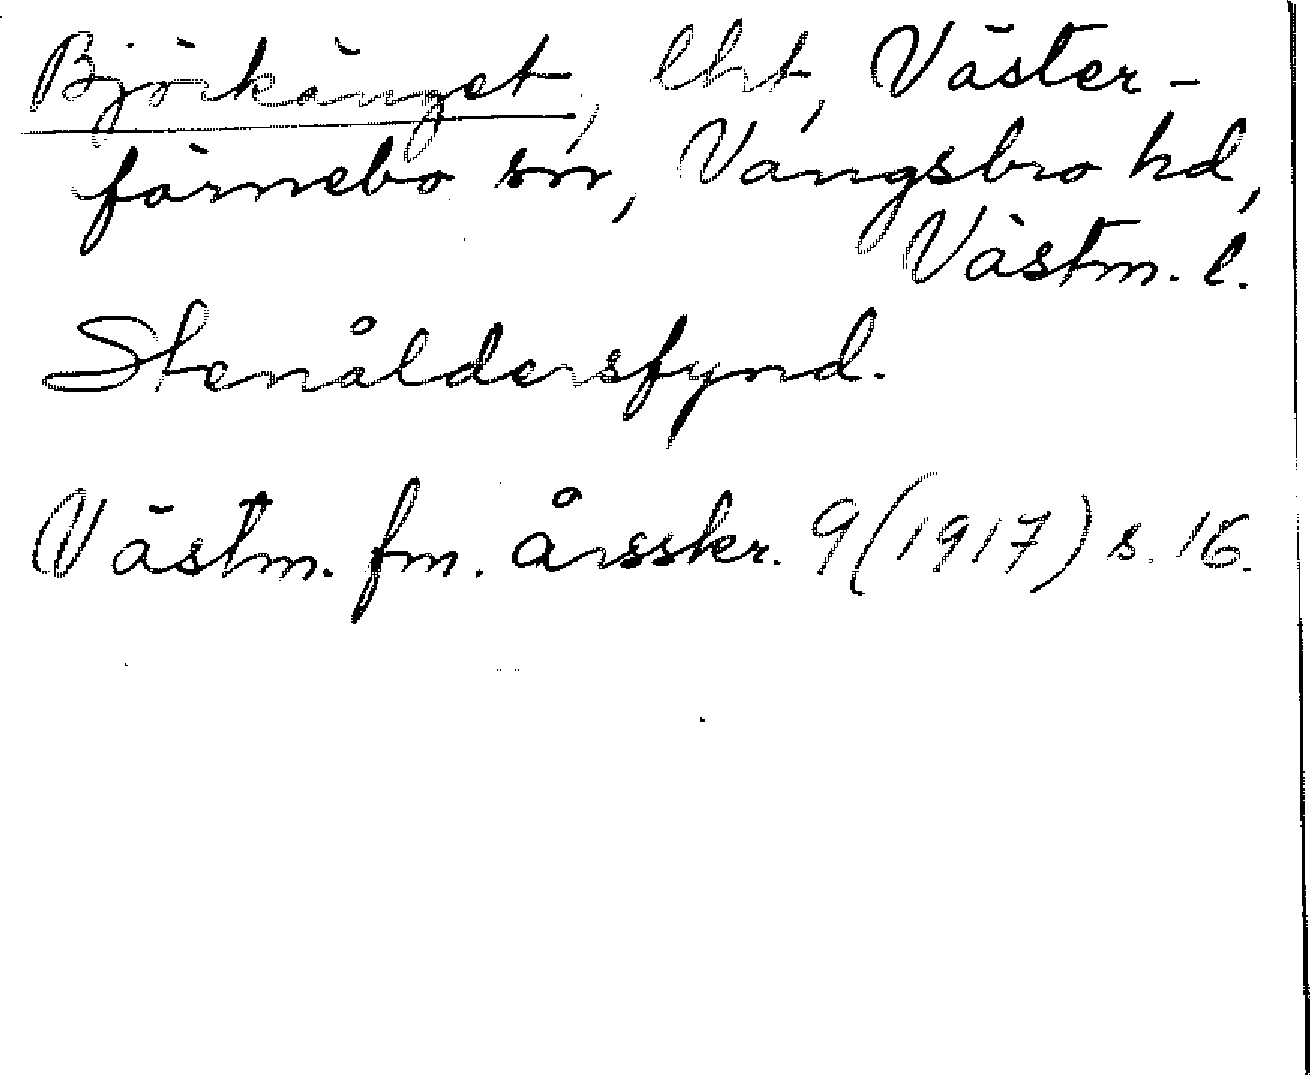 Björkänget, lht, Väster-
färnebo sn, Vangsbro hd,
Västm. l.
Stenåldersfynd.
Västm. fm. årsskr. 9 (1917) s. 16.